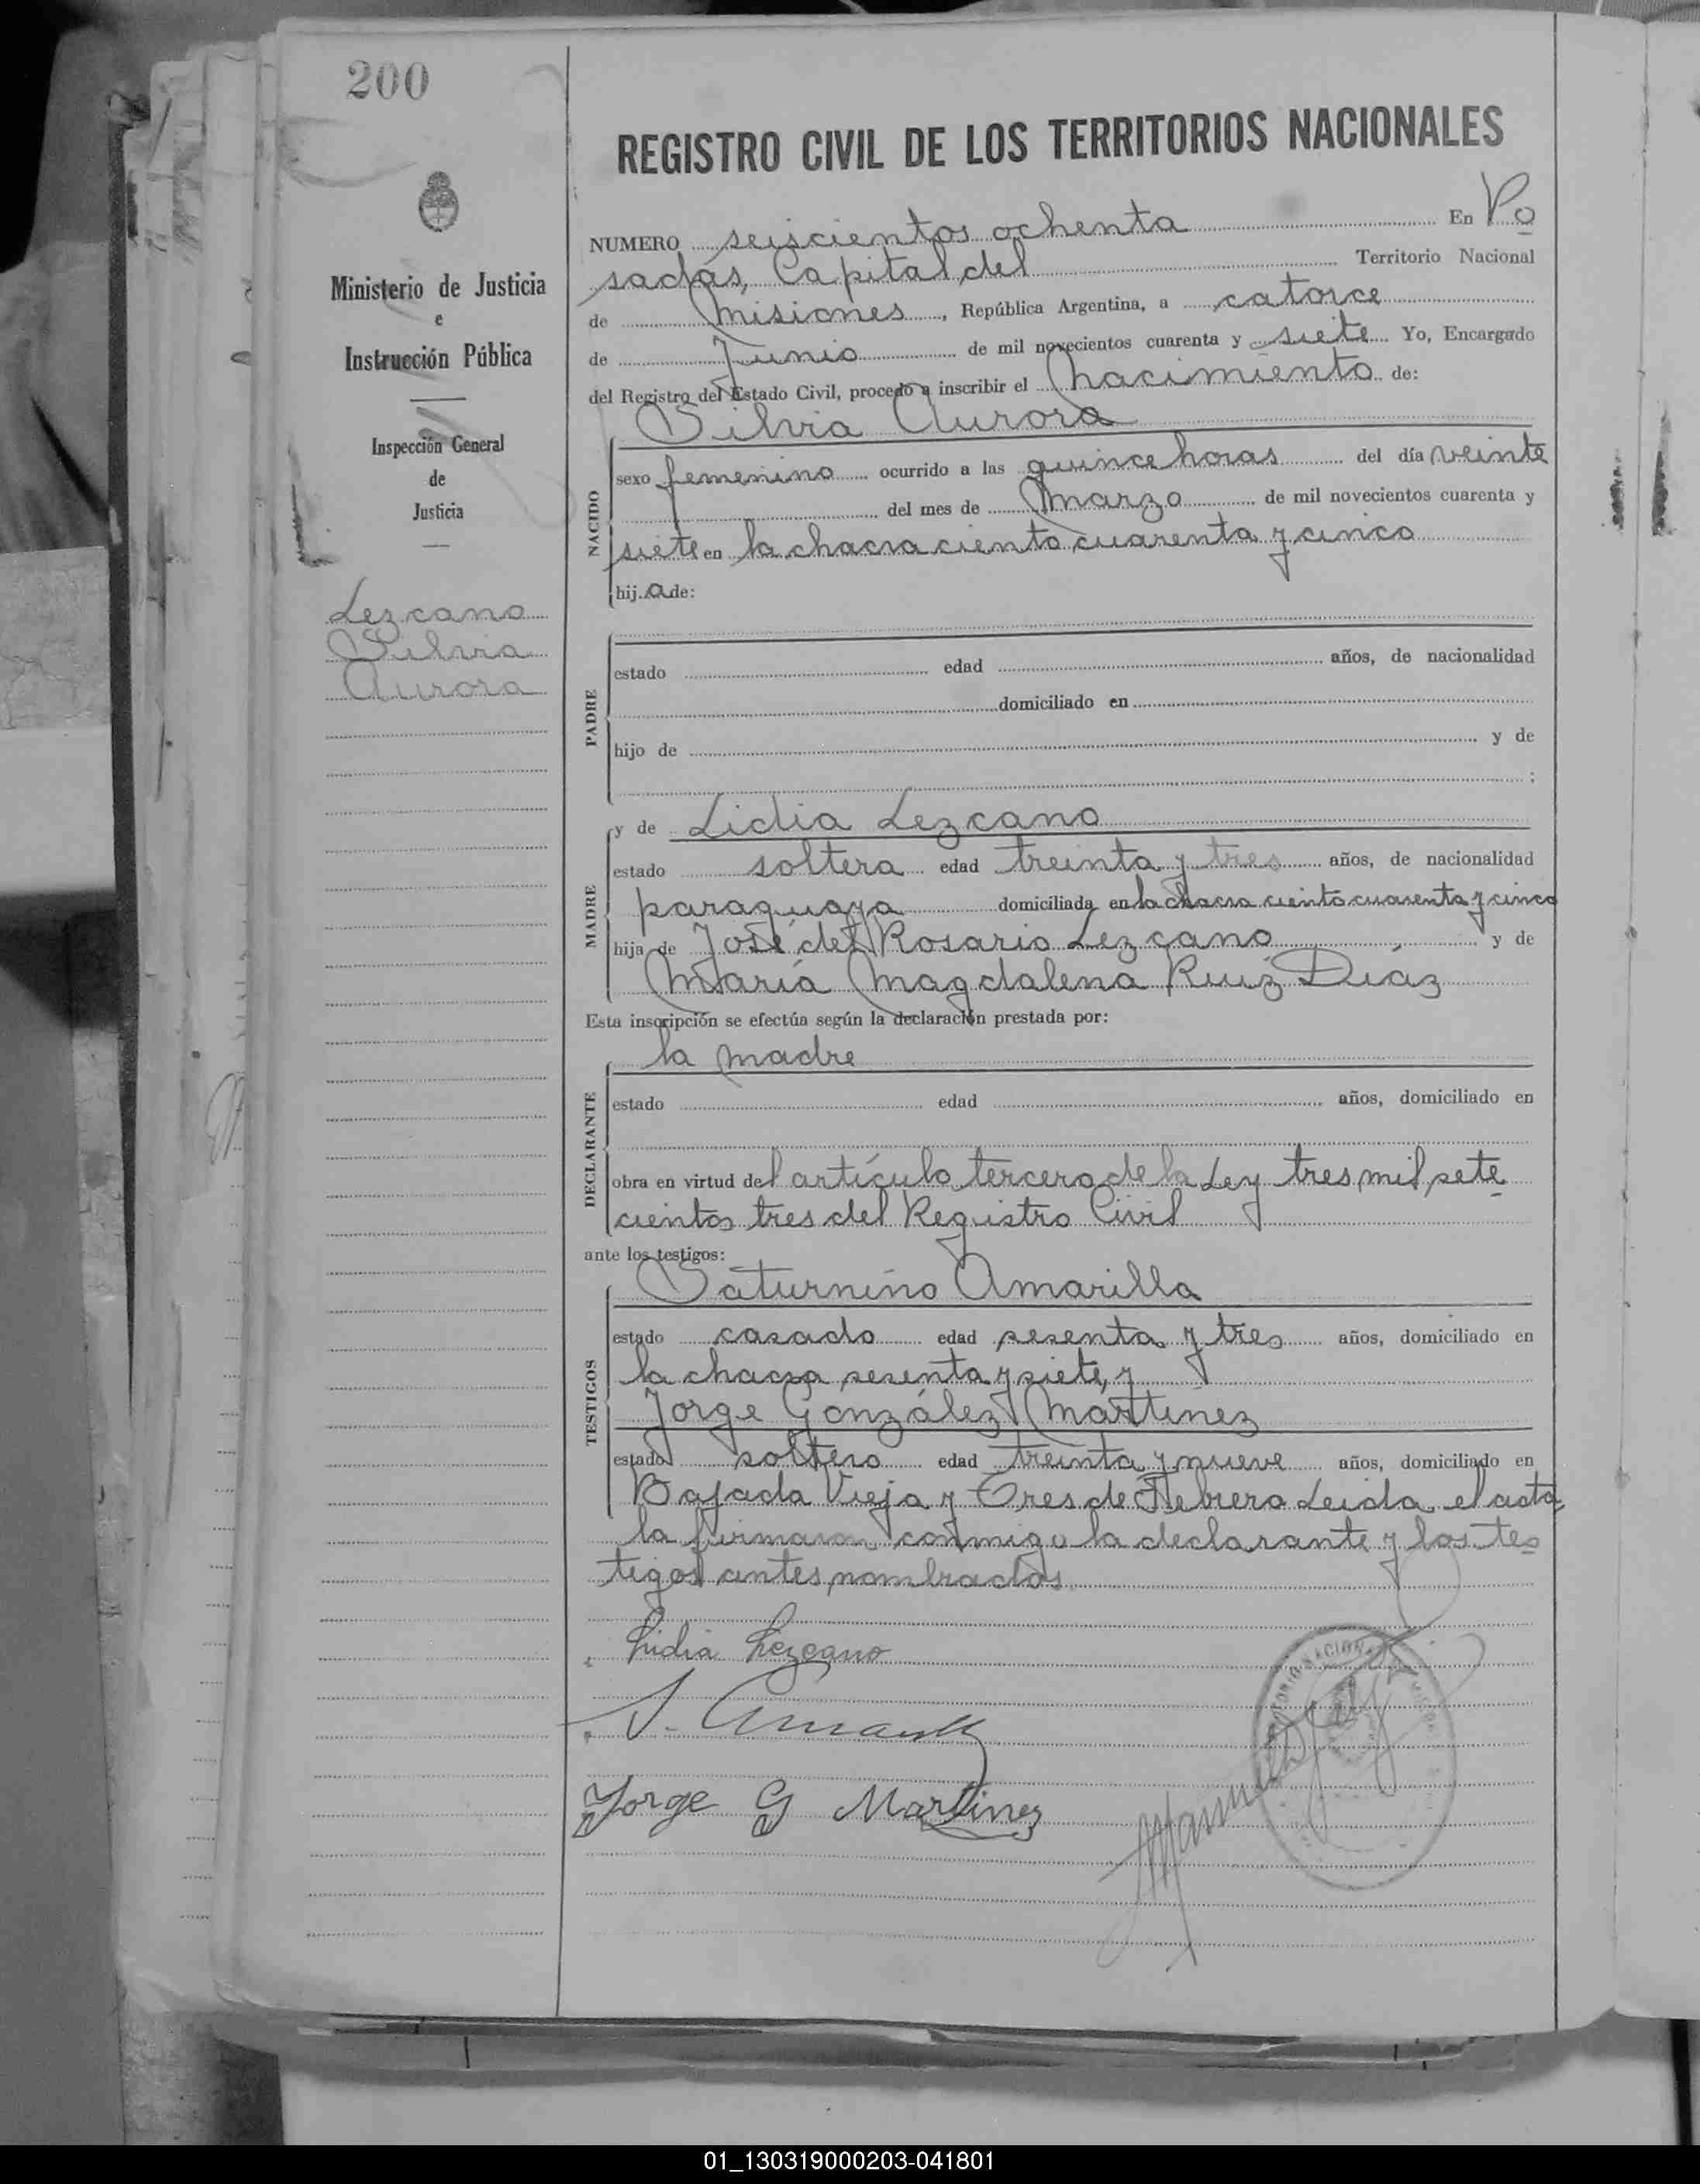 200
Ministerio de Justicia
e
Instrucción Pública
Inspección General
de
Justicia
Lezcano
Silvia
Aurora
REGISTRO CIVIL DE LOS TERRITORIOS NACIONALES
NUMERO seiscientos ochenta En Po
sadas, Capital del Territorio Nacional
de Misiones, República Argentina, a catorce
de Junio de mil novecientos cuarenta y siete Yo, Encargado
del Registro del Estado Civil, procedo a inscribir el nacimiento de:
Silvia Aurora
NACIDO
sexo femenino ocurrido a las quince horas del día veinte
del mes de Marzo de mil novecientos cuarenta y
siete en la chacra ciento cuarenta y cinco
hij a de:
PADRE
estado edad años, de nacionalidad
domiciliado en
hijo de y de
;
MADRE
y de Lidia Lezcano
estado soltera edad treinta y tres años, de nacionalidad
paraguaya domiciliada en la chacra ciento cuarenta y cinco
hija de José del Rosario Lezcano y de
María Magdalena Ruiz Díaz
Esta inscripción se efectúa según la declaración prestada por:
DECLARANTE
la madre
estado edad años, domiciliado en
obra en virtud del artículo tercero de la Ley tres mil sete
cientos tres del Registro Civil
ante los testigos:
TESTIGOS
Saturnino Amarilla
estado casado edad sesenta y tres años, domiciliado en
la chacra sesenta y siete, y
Jorge González Martinez
estado soltero edad treinta y nueve años, domiciliado en
Bajada Vieja y Tres de Febrero Leida el acta
la firmaron conmigo la declarante y los tes
tigos antes nombrados
Lidia Lezcano
S. Amarilla
Jorge G Martinez
01_130319000203-041801